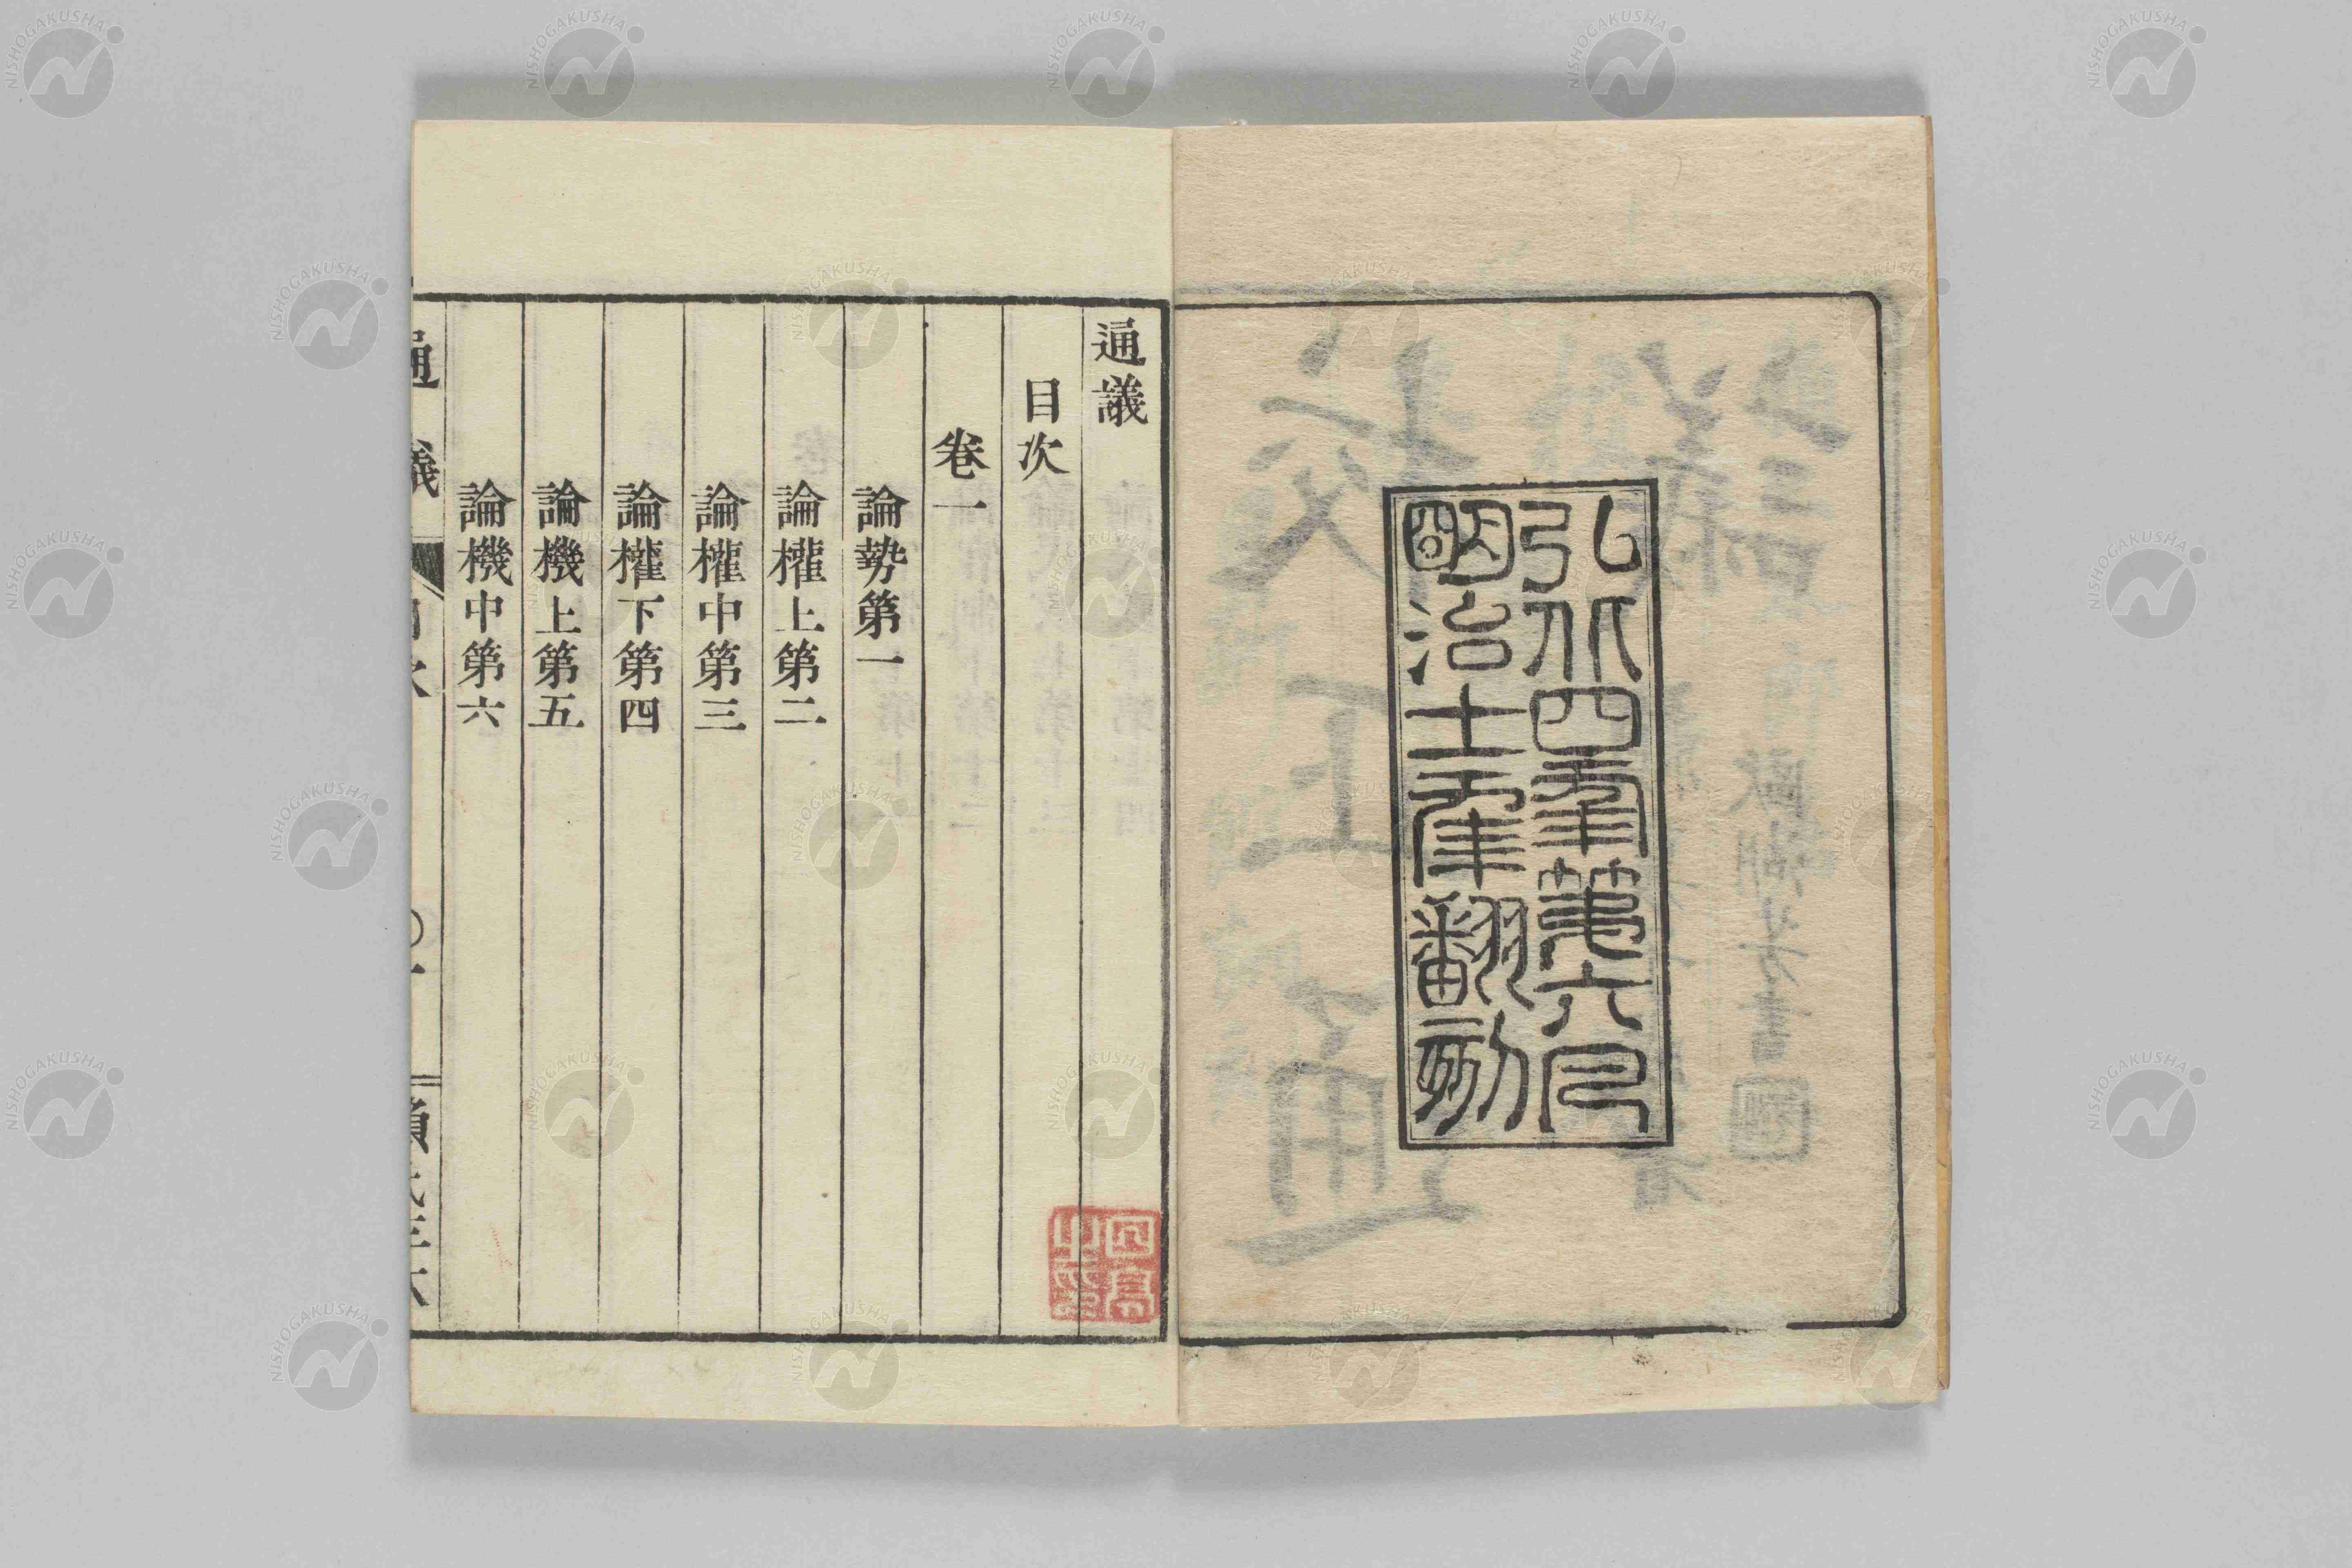 弘化四年第六月
明治十一年翻刻
通議
目次
卷一
論勢第一
論權上第二
論權中第三
論權下第四
論機上第五
論機中第六
通議
NISHOGAKUSHA